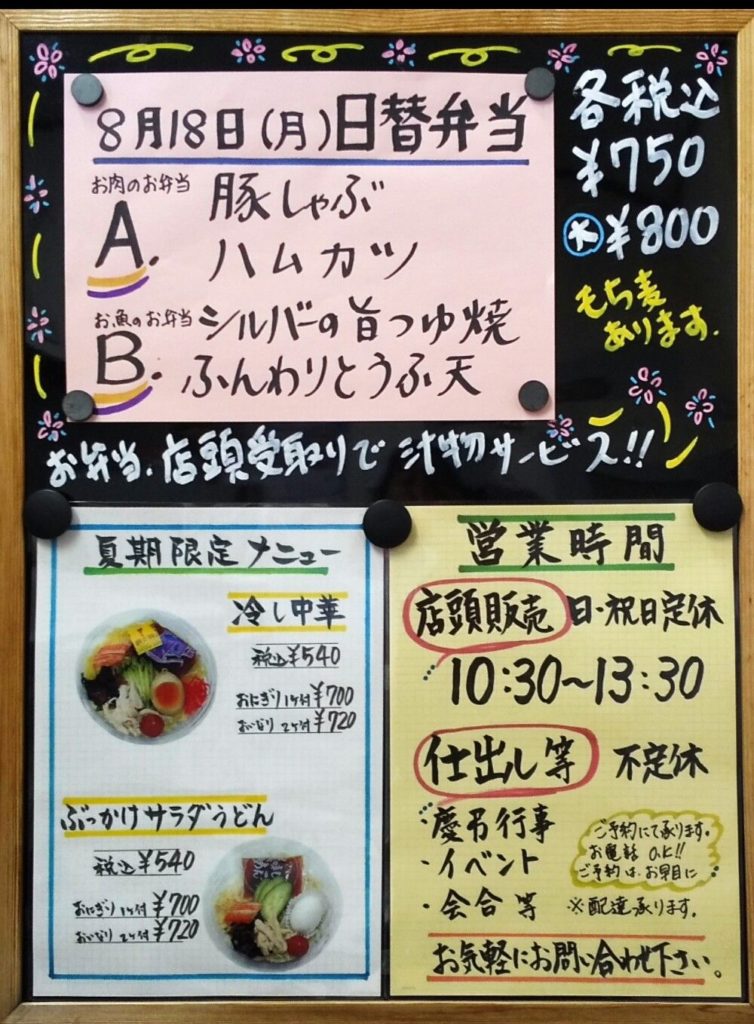 8月18日(月)日替弁当
お肉のお弁当
A. 豚しゃぶ
ハムカツ
お魚のお弁当
B. シルバーの旨つゆ焼
ふんわりとうふ天
各税込
¥750
大 ¥800
もち麦
あります.
お弁当、店頭受取りで 汁物サービス!!
夏期限定メニュー
冷し中華
税込¥540
おにぎり1ケ付¥700
おいなり2ケ付¥720
ぶっかけサラダうどん
税込¥540
おにぎり1ケ付¥700
おいなり2ケ付¥720
営業時間
店頭販売 日・祝日定休
10:30~13:30
仕出し等 不定休
・慶弔行事
・イベント
・会合等
ご予約にて承ります。
お電話 O.K!!
ご予約は、お早目に
※配達承ります。
お気軽にお問い合わせ下さい。